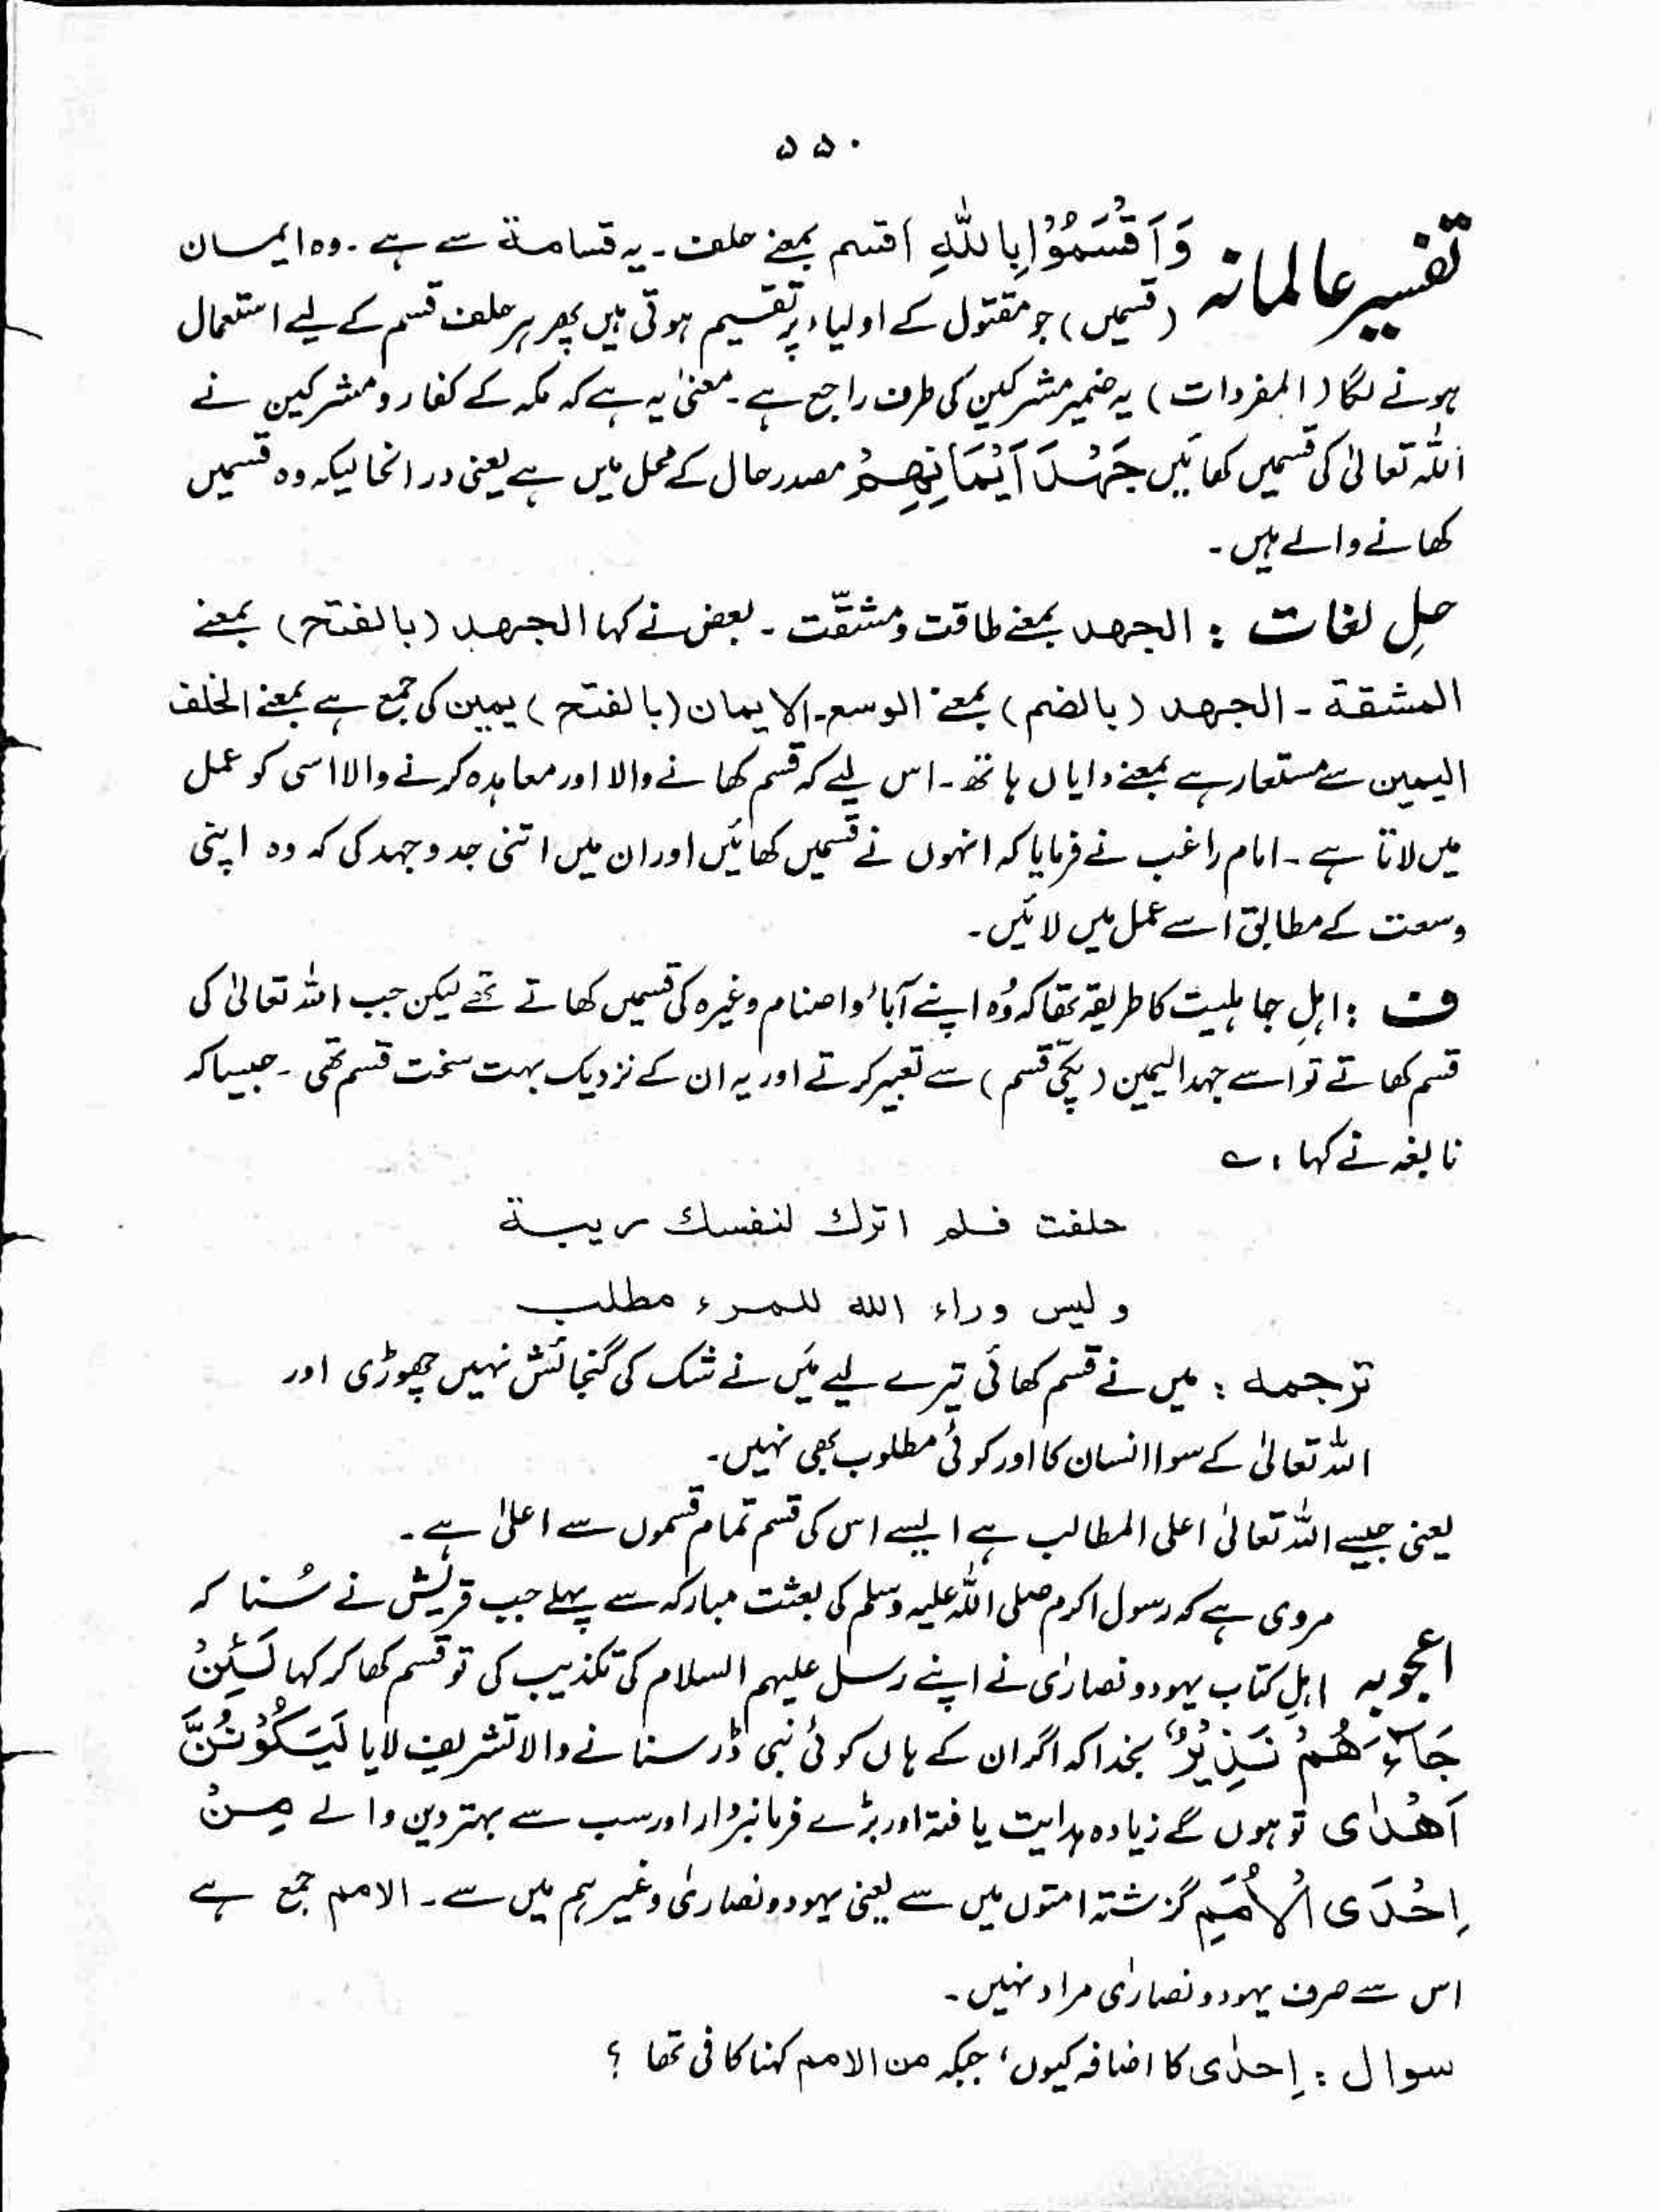 ۵۵۰
تفسیر عالمانہ وَاَقْسَمُوْا بِاللّٰہِ اقسم بمعنے حلف۔ یہ قسامۃ سے ہے۔ وہ ایمان
(قسمیں) جو مقتول کے اولیاء پر تقسیم ہوتی ہیں پھر ہر حلف قسم کے لیے استعمال
ہونے لگا (المفردات) یہ ضمیر مشرکین کی طرف راجع ہے۔ معنیٰ یہ ہے کہ مکہ کے کفار و مشرکین نے
اللہ تعالیٰ کی قسمیں کھائیں جَہْدَ اَیْمَانِہِمْ مصدر حال کے محل میں ہے یعنی در انحالیکہ وہ قسمیں
کھانے والے ہیں۔
حلِ لغات : الجھد بمعنے طاقت و مشقّت۔ بعض نے کہا الجھد (بالفتح) بمعنے
المشقۃ۔ الجھد (بالضم) بمعنے الوسع۔ الایمان (بالفتح) یمین کی جمع ہے بمعنے الحلف
الیمین سے مستعار ہے بمعنے دایاں ہاتھ۔ اس لیے کہ قسم کھانے والا اور معاہدہ کرنے والا اسی کو عمل
میں لاتا ہے۔ امام راغب نے فرمایا کہ انہوں نے قسمیں کھائیں اور ان میں اتنی جدوجہد کی کہ وہ اپنی
وسعت کے مطابق اسے عمل میں لائیں۔
ف : اہلِ جاہلیت کا طریقہ تھا کہ وُہ اپنے آباء و اصنام وغیرہ کی قسمیں کھاتے تھے لیکن جب اللہ تعالیٰ کی
قسم کھاتے تو اسے جہد الیمین (پکّی قسم) سے تعبیر کرتے اور یہ ان کے نزدیک بہت سخت قسم تھی۔ جیسا کہ
نابغہ نے کہا : ؎
حلفت فلم اترك لنفسك ريبة
و ليس وراء الله للمرء مطلب
ترجمہ : میں نے قسم کھائی تیرے لیے مَیں نے شک کی گنجائش نہیں چھوڑی اور
اللہ تعالیٰ کے سوا انسان کا اور کوئی مطلوب بھی نہیں۔
یعنی جیسے اللہ تعالیٰ اعلی المطالب ہے ایسے اس کی قسم تمام قسموں سے اعلیٰ ہے۔
مروی ہے کہ رسول اکرم صلی اللہ علیہ وسلم کی بعثت مبارکہ سے پہلے جب قریش نے سُنا کہ
اعجوبہ اہلِ کتاب یہود و نصاریٰ نے اپنے رسل علیہم السلام کی تکذیب کی تو قسم کھا کر کہا لَئِنْ
جَآءَھُمْ نَذِیْرٌ بخدا کہ اگر ان کے ہاں کوئی نبی ڈر سنانے والا تشریف لایا لَیَکُوْنُنَّ
اَھْدٰی تو ہوں گے زیادہ ہدایت یافتہ اور بڑے فرمانبردار اور سب سے بہتر دین والے مِنْ
اِحْدَی الْاُمَمِ گزشتہ امتوں میں سے یعنی یہود و نصاریٰ وغیرہم میں سے۔ الامم جمع ہے
اس سے صرف یہود و نصاریٰ مراد نہیں۔
سوال : اِحدٰی کا اضافہ کیوں، جبکہ من الامم کہنا کافی تھا ؟